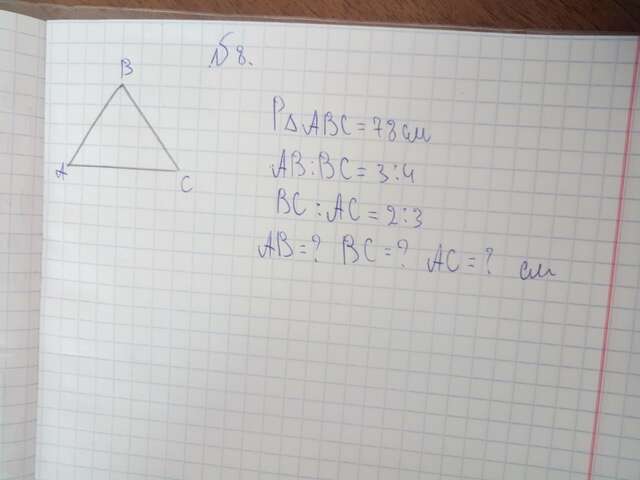 №8.
B
A
C
P△ABC=78см
AB:BC=3:4
BC:AC=2:3
AB=? BC=? AC=? см